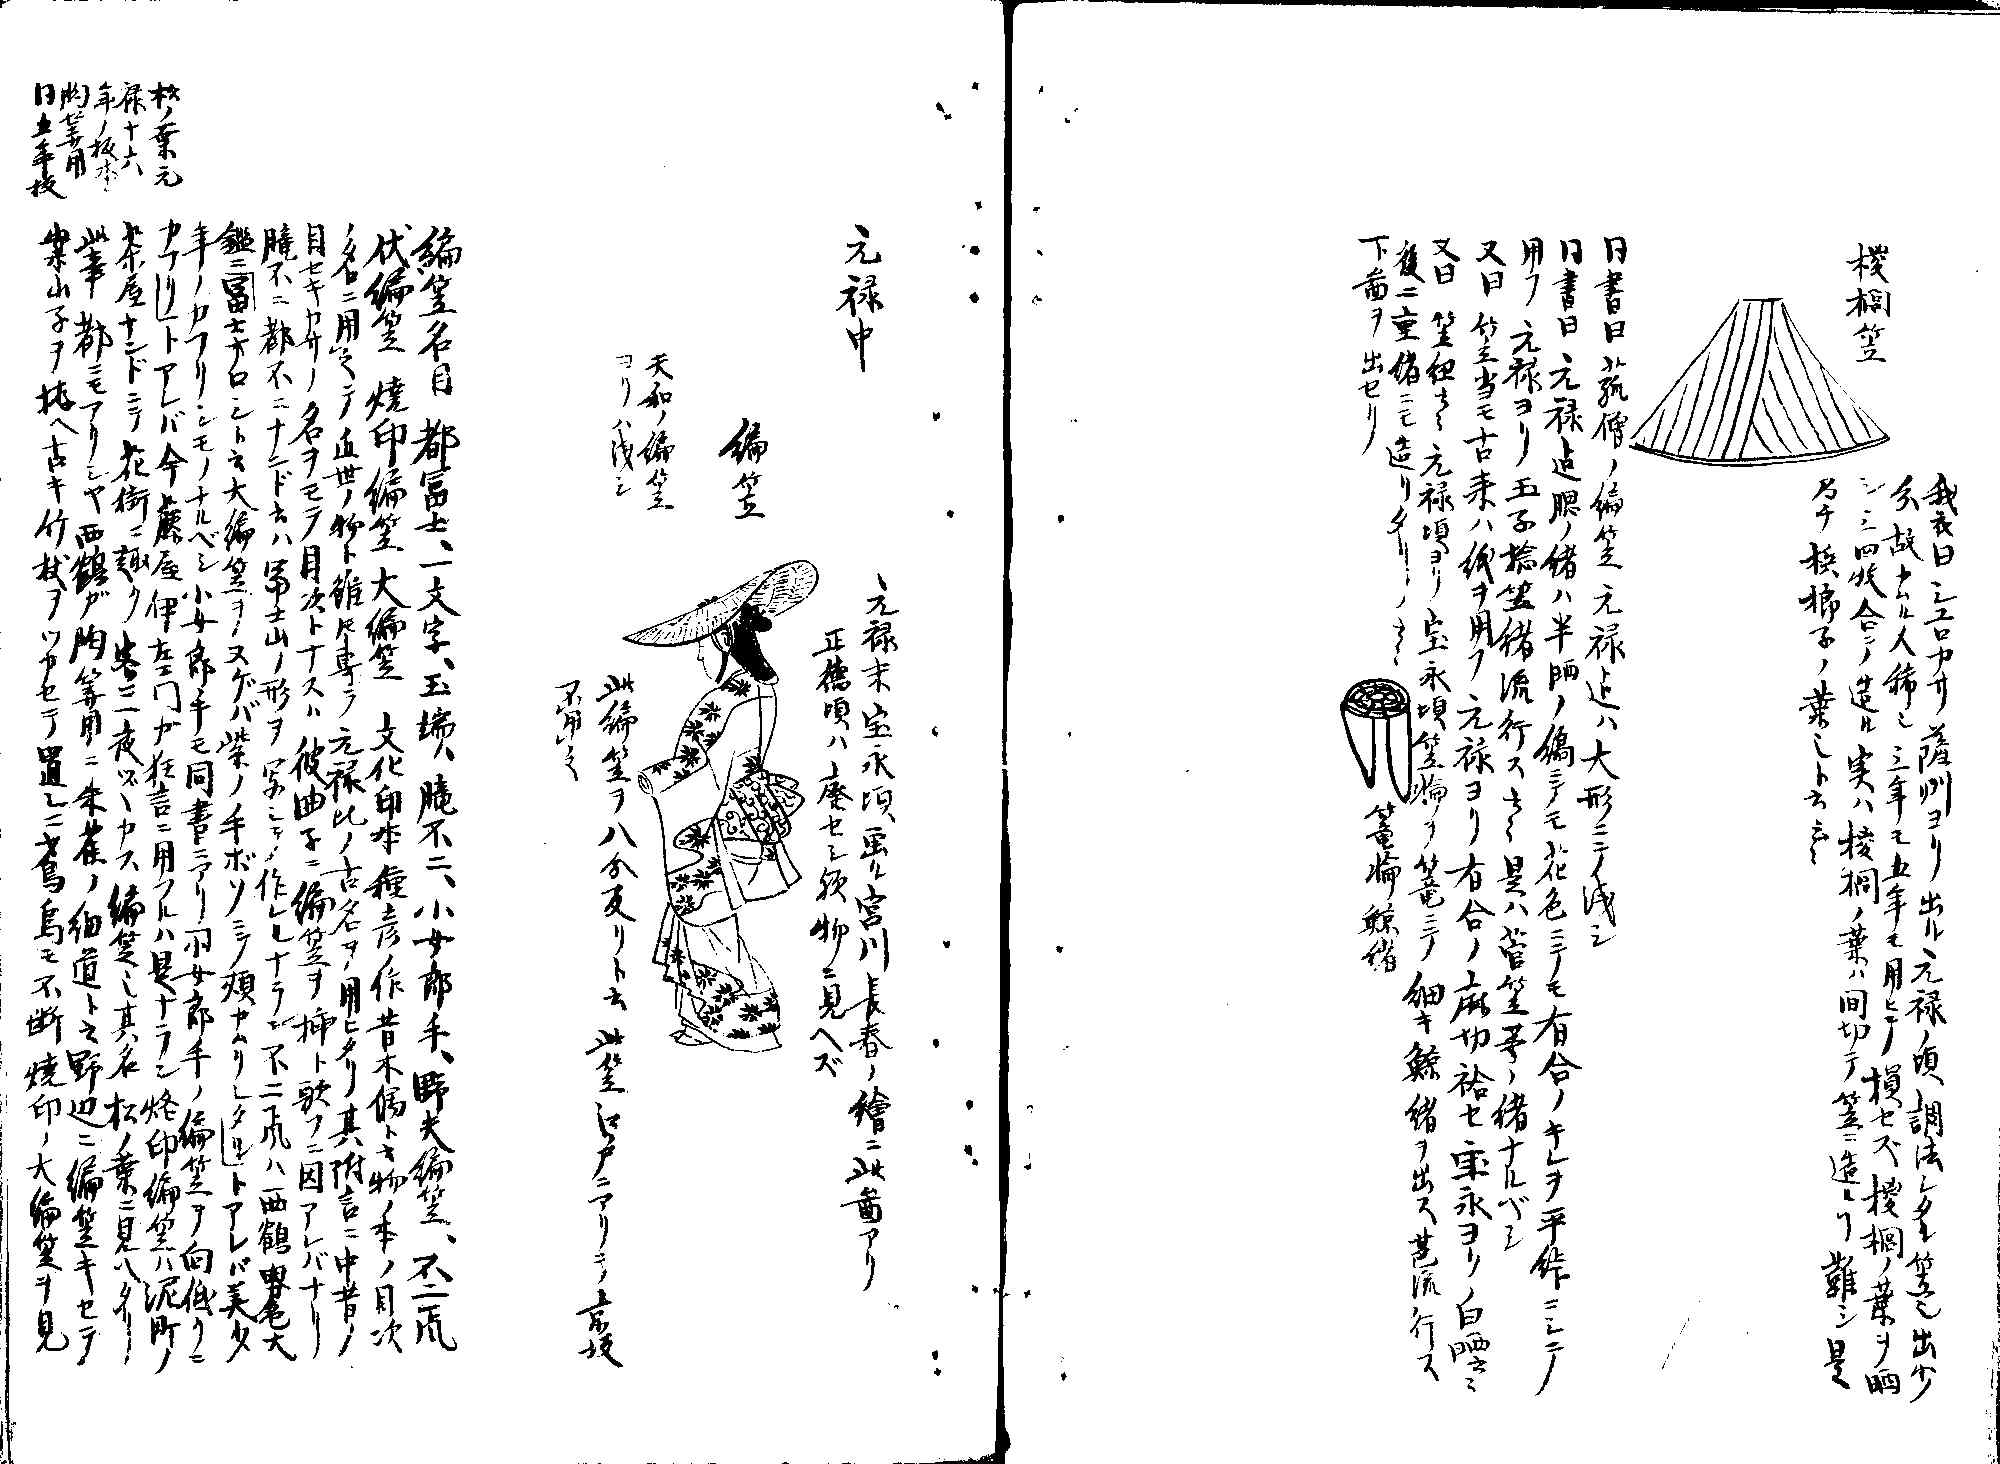 椶櫚笠
我衣曰シユロカサ薩州ヨリ出ル元禄ノ頃調法シタル笠也出少
分故ナルハ人稀シ三年モ五年モ用ヒテ損セズ椶櫚ノ葉ヲ晒
シ三四枚合テ造ル実ハ椶櫚ノ葉ハ間切テ笠ニ造リ難シ是
乃チ檳榔子ノ葉也ト云々
同書曰虚僧ノ編笠元禄迄ハ大形ニテ浅シ
同書曰元禄迄腮ノ緒ハ半晒ノ縞ニテモ花色ニテモ有合ノキレヲ平絎ニシテ
用フ元禄ヨリ玉子捻笠緒流行ス云々是ハ菅笠等ノ緒ナルベシ
又曰笠当モ古来ハ紙ヲ用フ元禄ヨリ有合ノ麻切袷セ宝永ヨリノ白晒云々
又曰笠紐云々元禄頃ヨリ宝永頃笠輪ヲ篭ニテ細キ鯨緒ヲ出ス甚流行ス
後ニ二重緒ニモ造リタリ云々
下畵ヲ出セリ
篭輪鯨緒
元禄中
編笠
天和ノ編笠
ヨリハ浅シ
元禄末宝永頃画ク宮川長春ノ繪ニ此畵アリ
正徳頃ハ廃セシ欤物ニ見ヘズ
此編笠ヲ八分反リト云此笠江戸ニアリテ京坂
不用之
編笠名目都富士、一文字、玉縁、朧不二、小女郎手、野夫編笠、不二颪
伏編笠焼印編笠大編笠文化印本種彦作昔木偶ト云物ノ本ノ目次
ノ名ニ用之テ近世ノ物ト雖ドモ専ラ元禄比ノ古名ヲ用ヒタリ其附言ニ中昔ノ
目セキカサノ名ヲモテ目次トナスハ彼曲子ニ編笠ヲ挿ト歌フニ因アレバナリ
朧不二都不二ナンド云ハ冨士山ノ形ヲ写シテ作レルナラン不二颪ハ西鶴男色大
鑑ニ冨士オロシト云大編笠ヲノスゲバ柴ノ手ボソニテ頬カムリシタルトアレバ美少
年ノカブリシモノナルベシ小女郎手モ同書ニアリ小女郎手ノ編笠ヲ向低クニ
カブリトアレバ今藤屋伊左エ門ガ狂言ニ用フルハ是ナラン焼印編笠ハ泥町ノ
茶屋ナンドニテ花街ニ趣ク客ニ一夜ヅヽカス編笠也其名松ノ葉ニ見ヘタリ
此事都ニモアリシヤ西鶴ガ胸筭用ニ朱雀ノ細道ト云野辺ニ編笠キセテ
案山子ヲ拵ヘ古キ竹杖ヲツカセテ置シニ鳶烏モ不断焼印ノ大編笠ヲ見
松ノ葉元
禄十六
年ノ板本
胸筭用
同五年板